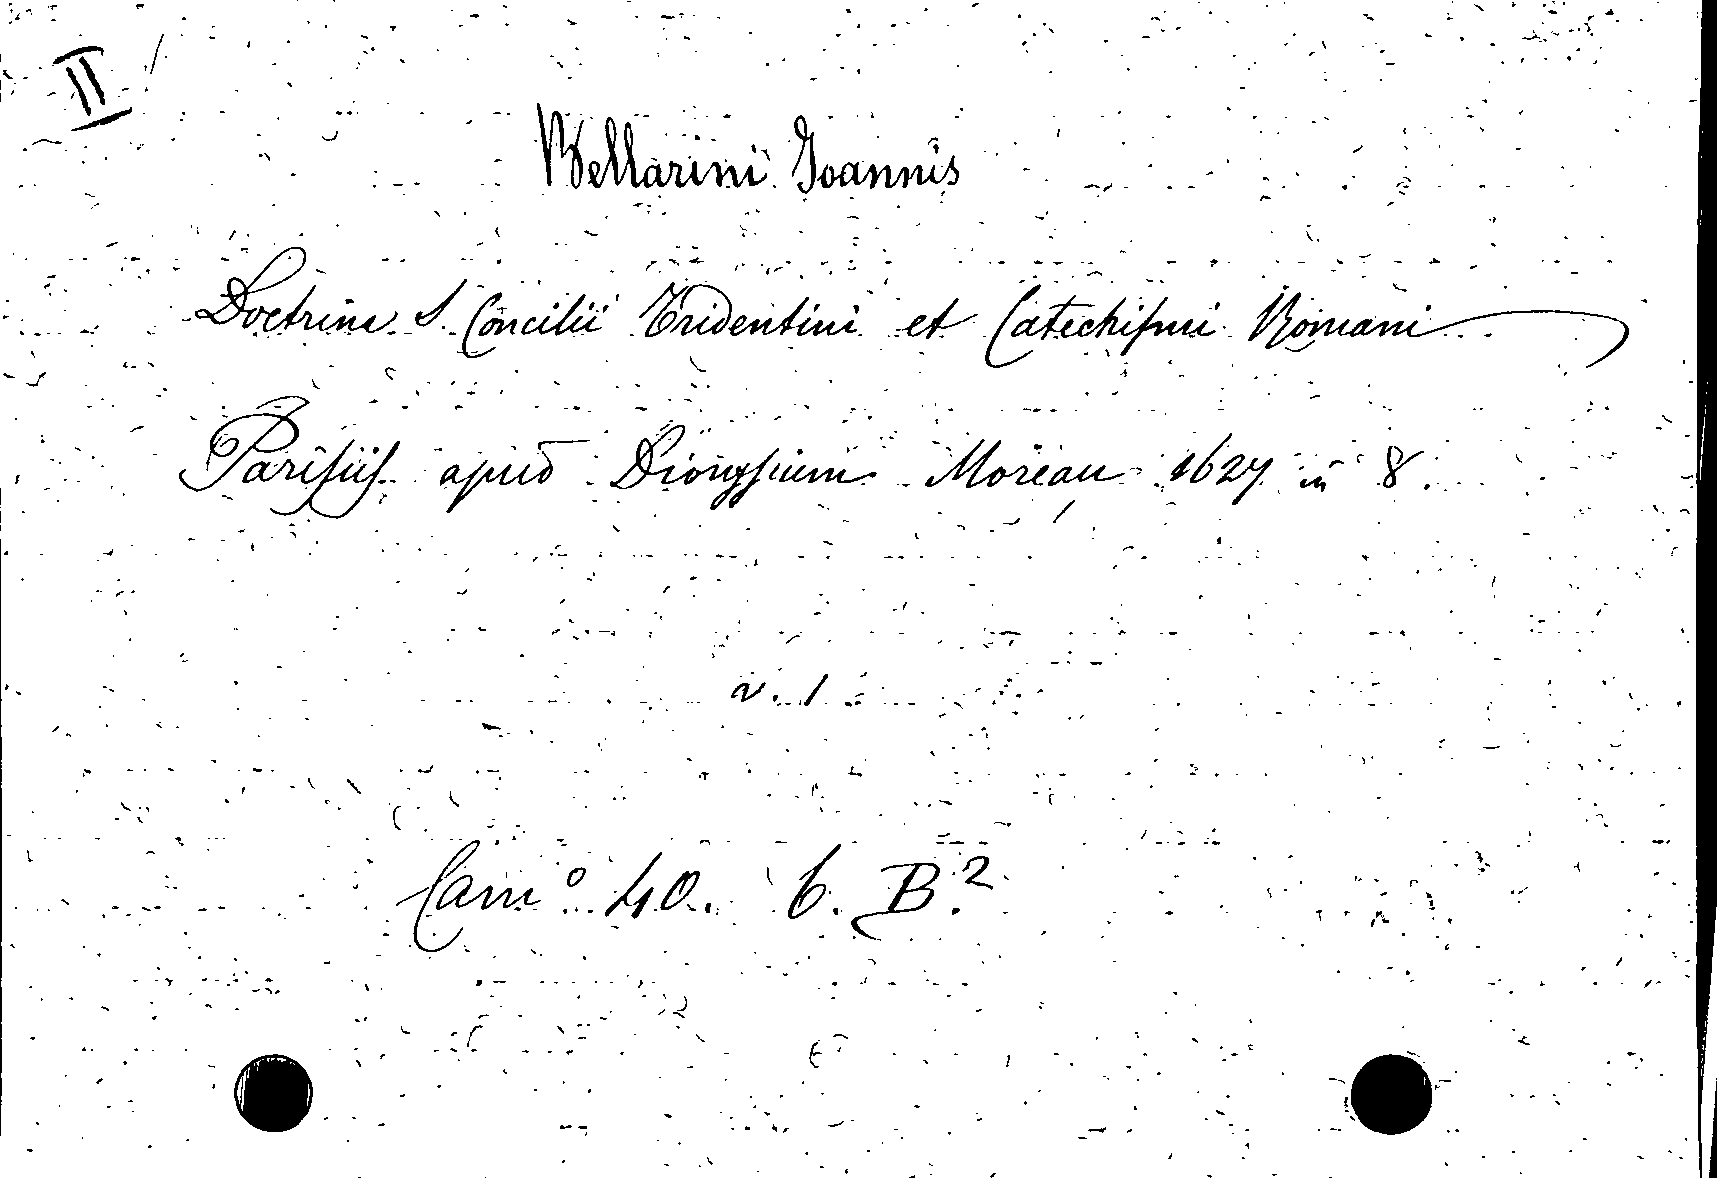 II
Bellarini Joannis
Doctrina S. Concilii Tridentini et Catechismi Romani
Parisiis apud Dionysium Moreau 1627 in 8.
v. 1
Cam.º 40. 6. B.2